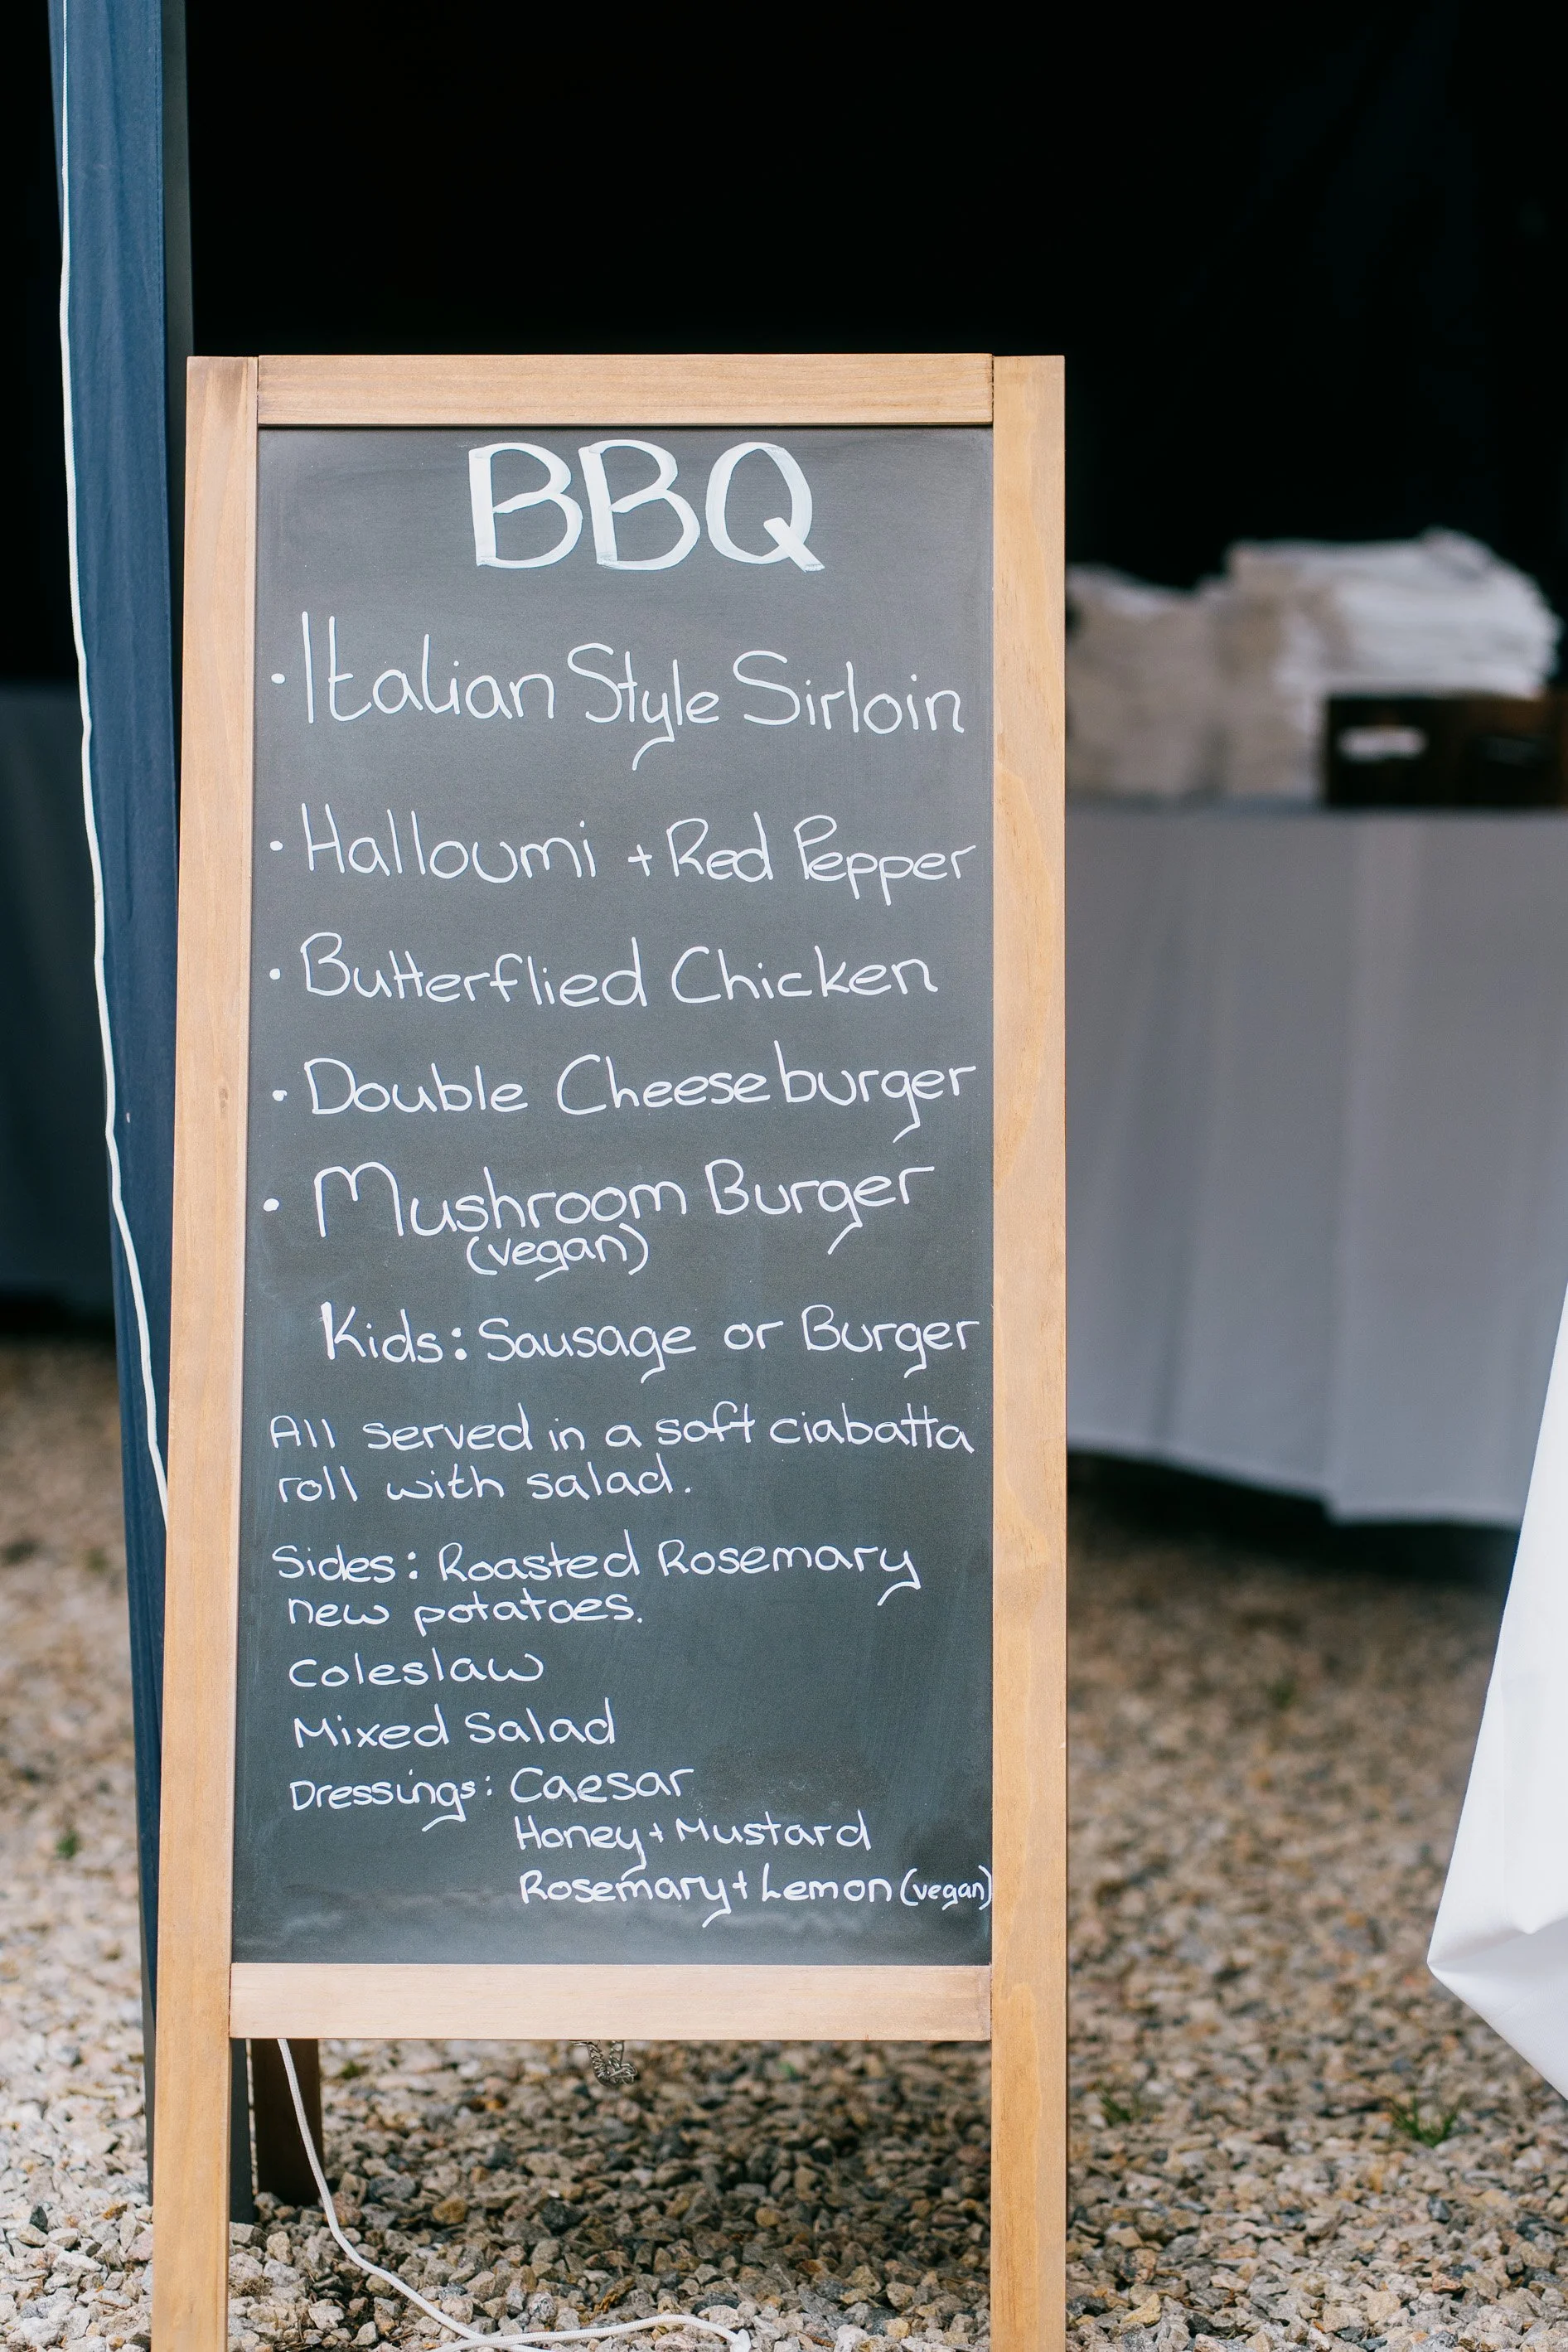 BBQ
· Italian Style Sirloin
· Halloumi + Red Pepper
· Butterflied Chicken
· Double Cheeseburger
· Mushroom Burger
(vegan)
Kids: Sausage or Burger
All served in a soft ciabatta
roll with salad.
Sides: Roasted Rosemary
new potatoes.
Coleslaw
Mixed Salad
Dressings: Caesar
Honey + Mustard
Rosemary + Lemon (vegan)